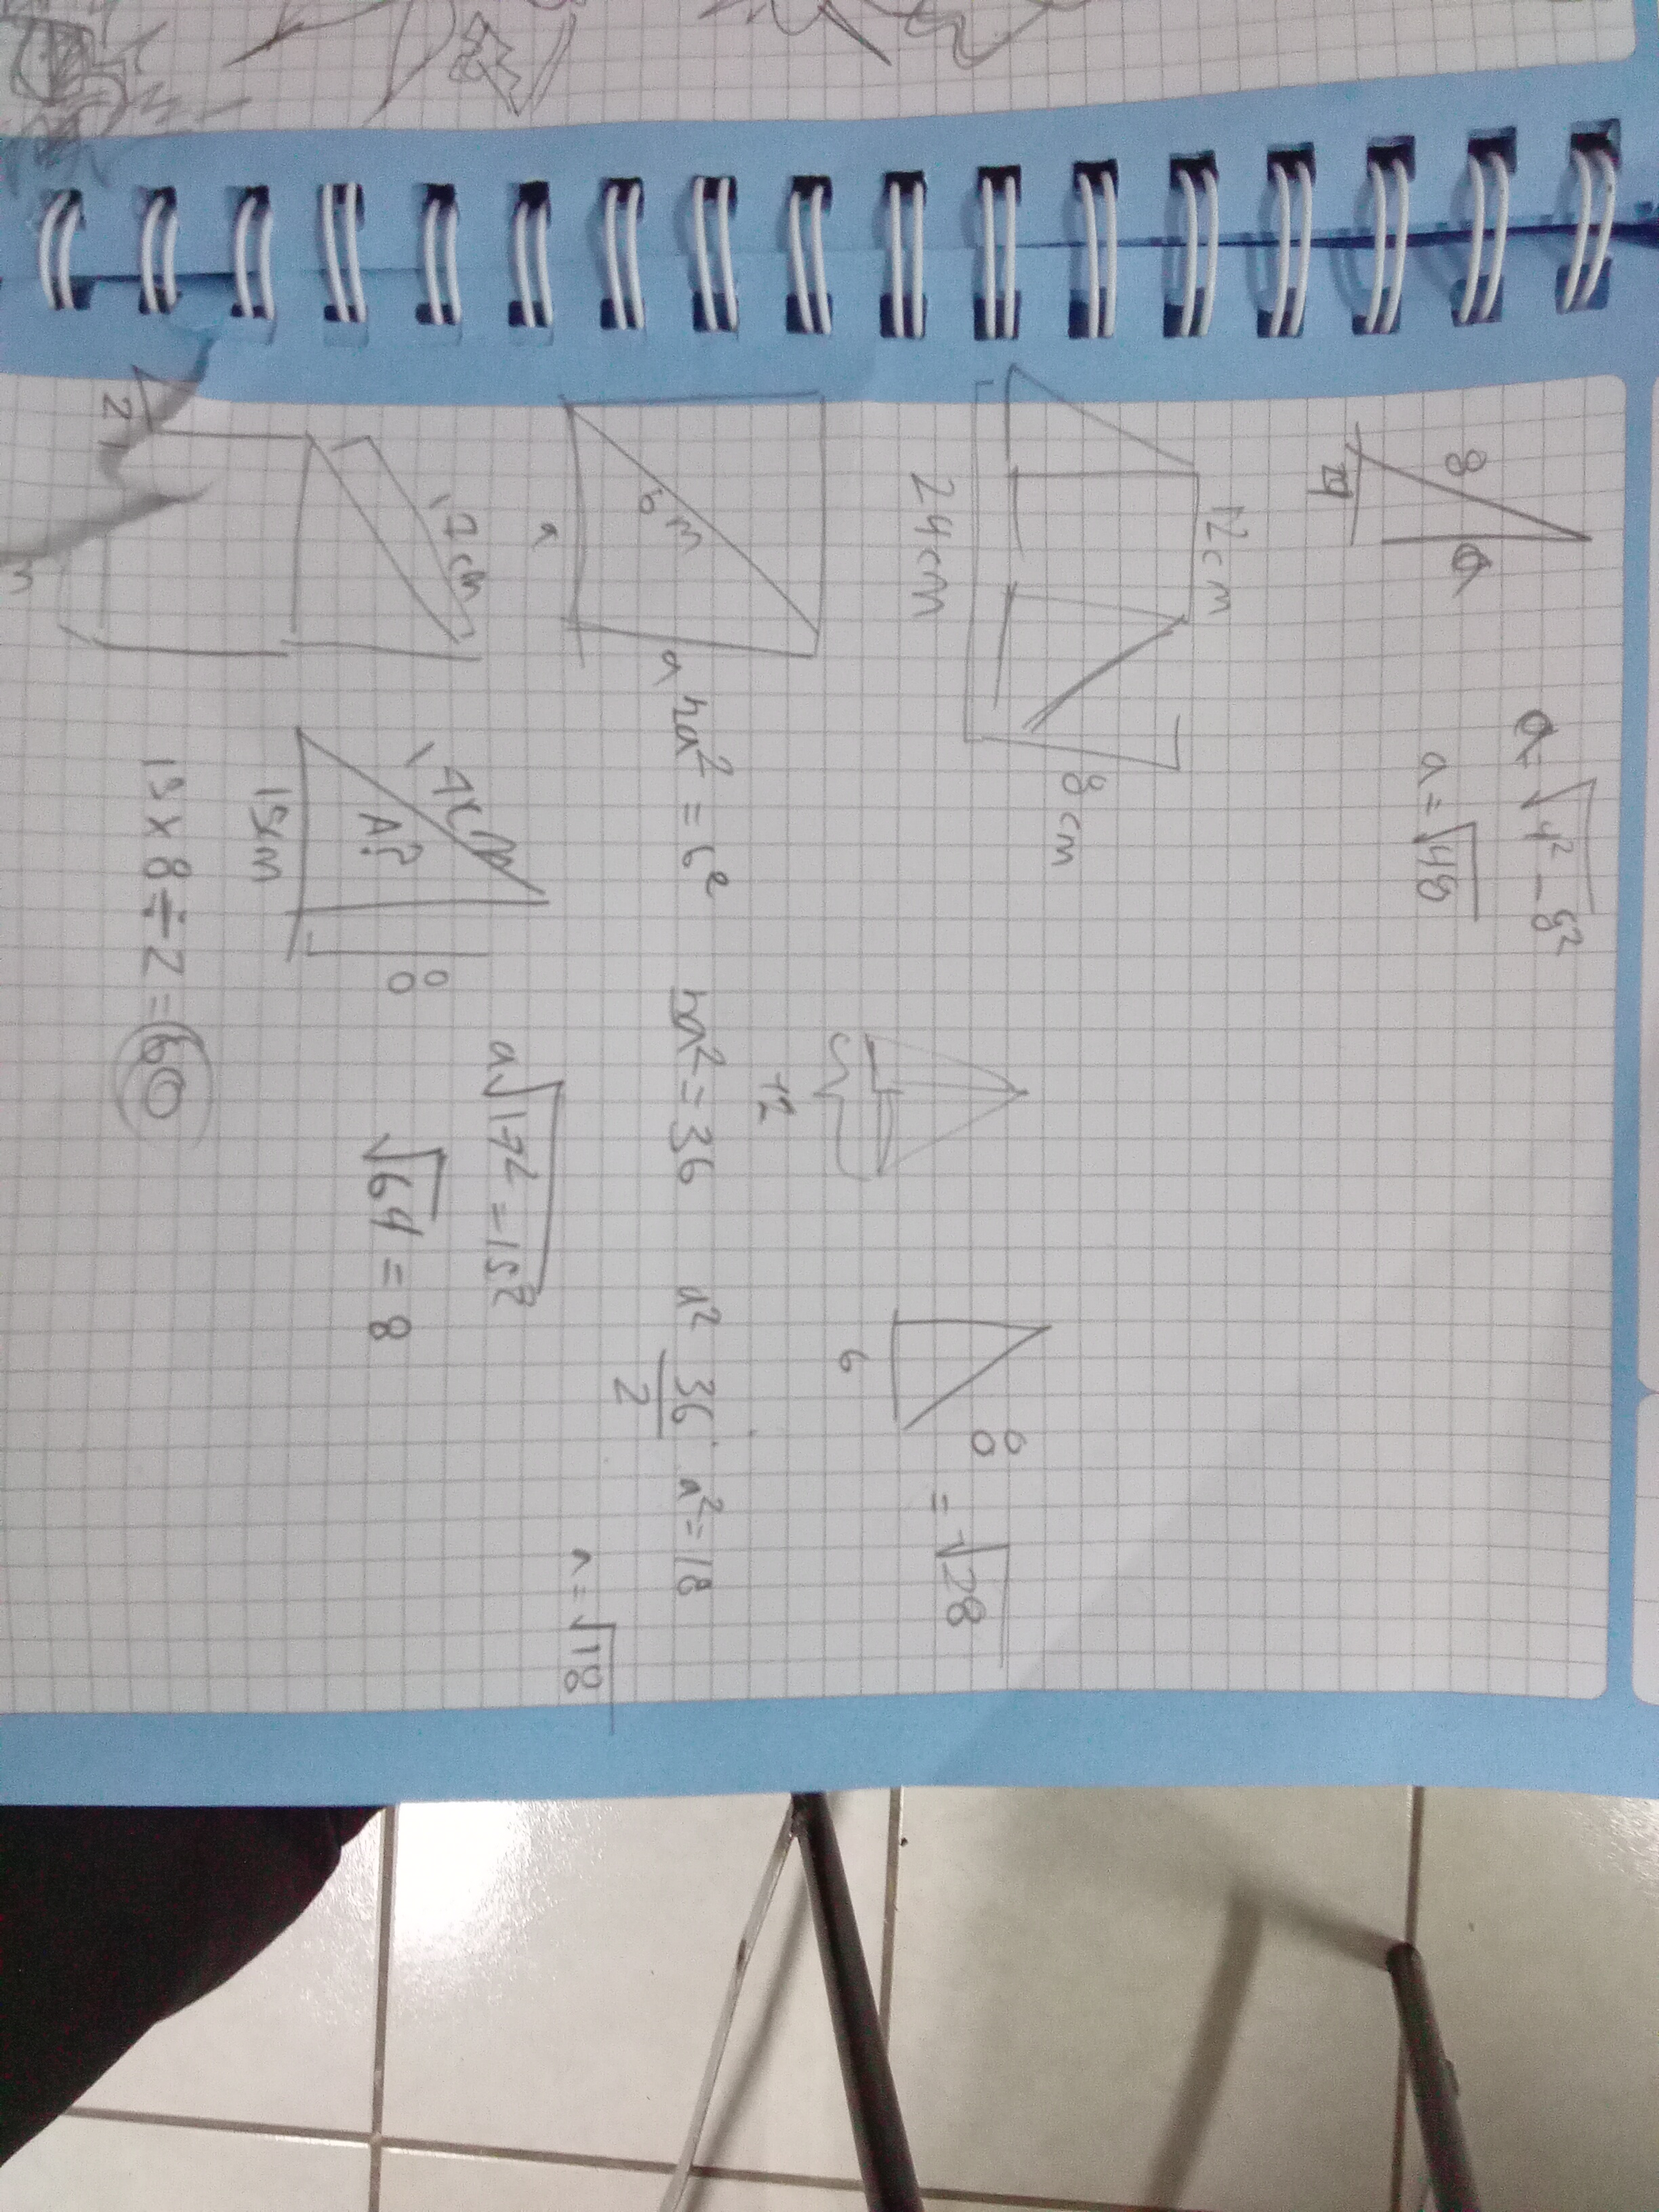 8
4
a
a = √4² - 8²
a = √48
12 cm
24 cm
8 cm
12
6
8
= √28
6 m
a
a
ha² = 6²
ha² = 36
a² 36/2
a² = 18
a = √18
17 cm
15cm
A?
8
a√17² = 15²
√64 = 8
15 x 8 ÷ 2 = 60